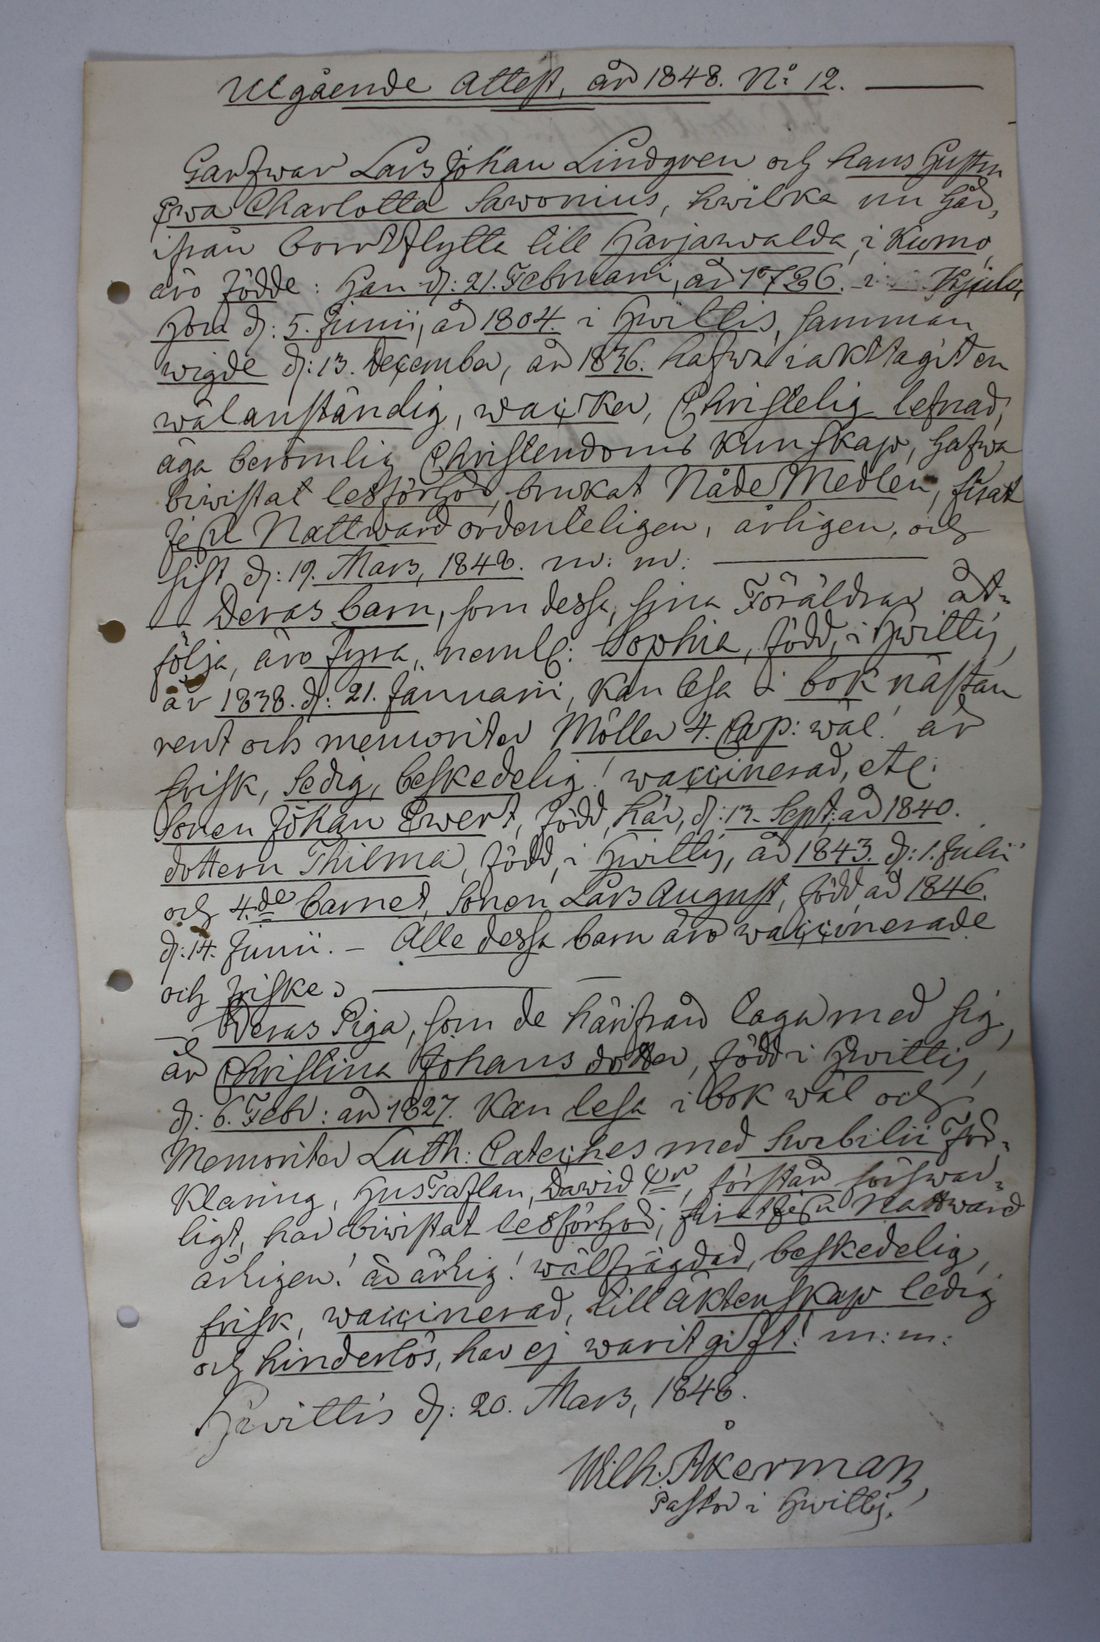 Utgående Attest, år 1848. No 12.
Garfwar Lars Johan Lindgren och hans Hustru
Ewa Charlotta Sawonius, hwilka nu här,
ifrån bortflytta till Harjawalda, i Kumo,
äro födde: Han d: 21. Februarii, år 1786. i Kjulo,
Hon d: 5. Junii, år 1804. i Hwittis, samman
wigde d: 13. December, år 1836. hafwa iakttagit en
wälanständig, wacker, Christelig lefnad,
äga berömlig Christendoms Kunskap, hafwa
biwistat läsförhör, brukat Nåde Medlen, firat
Jesu Nattward ordenteligen, årligen, och
sist d: 19. Mars, 1848. m: m:
Deras barn, som dessa, sina Föräldrar åt-
följa, äro fyra, neml: Sophia, född, i Hwittis,
år 1838. d: 21. Januarii, kan läsa i bok nästan
rent och memoriter Möller 4. Cap: wäl! är
frisk, sedig, beskedelig! waccinerad, etc:
Sonen Johan Ewert, född, här, d: 13. Sept: år 1840.
dottern Thilma, född, i Hwittis, år 1843. d: 1. Julii
och 4.de barnet, Sonen Lars August, född år 1846.
d: 14. Junii. - Alle dessa barn äro waccinerade
och friske.
Deras Piga, som de härifrån taga med sig,
är Christina Johans dotter, född i Hwittis,
d: 6. Febr: år 1827. Kan läsa i bok wäl och
Memoriter Luth: Cateches med Swebilii För-
klaring, Hustaflan, Dawid Ps, förstår förswar-
ligt, har biwistat läsförhör; firat Jesu Nattward
årligen! är ärlig! wälfrägdad, beskedelig,
frisk, waccinerad, till äktenskap ledig
och hinderlös, har ej warit gift! m: m:
Hwittis d: 20. Mars, 1848.
Wilh: Åkerman,
Pastor i Hwittis.